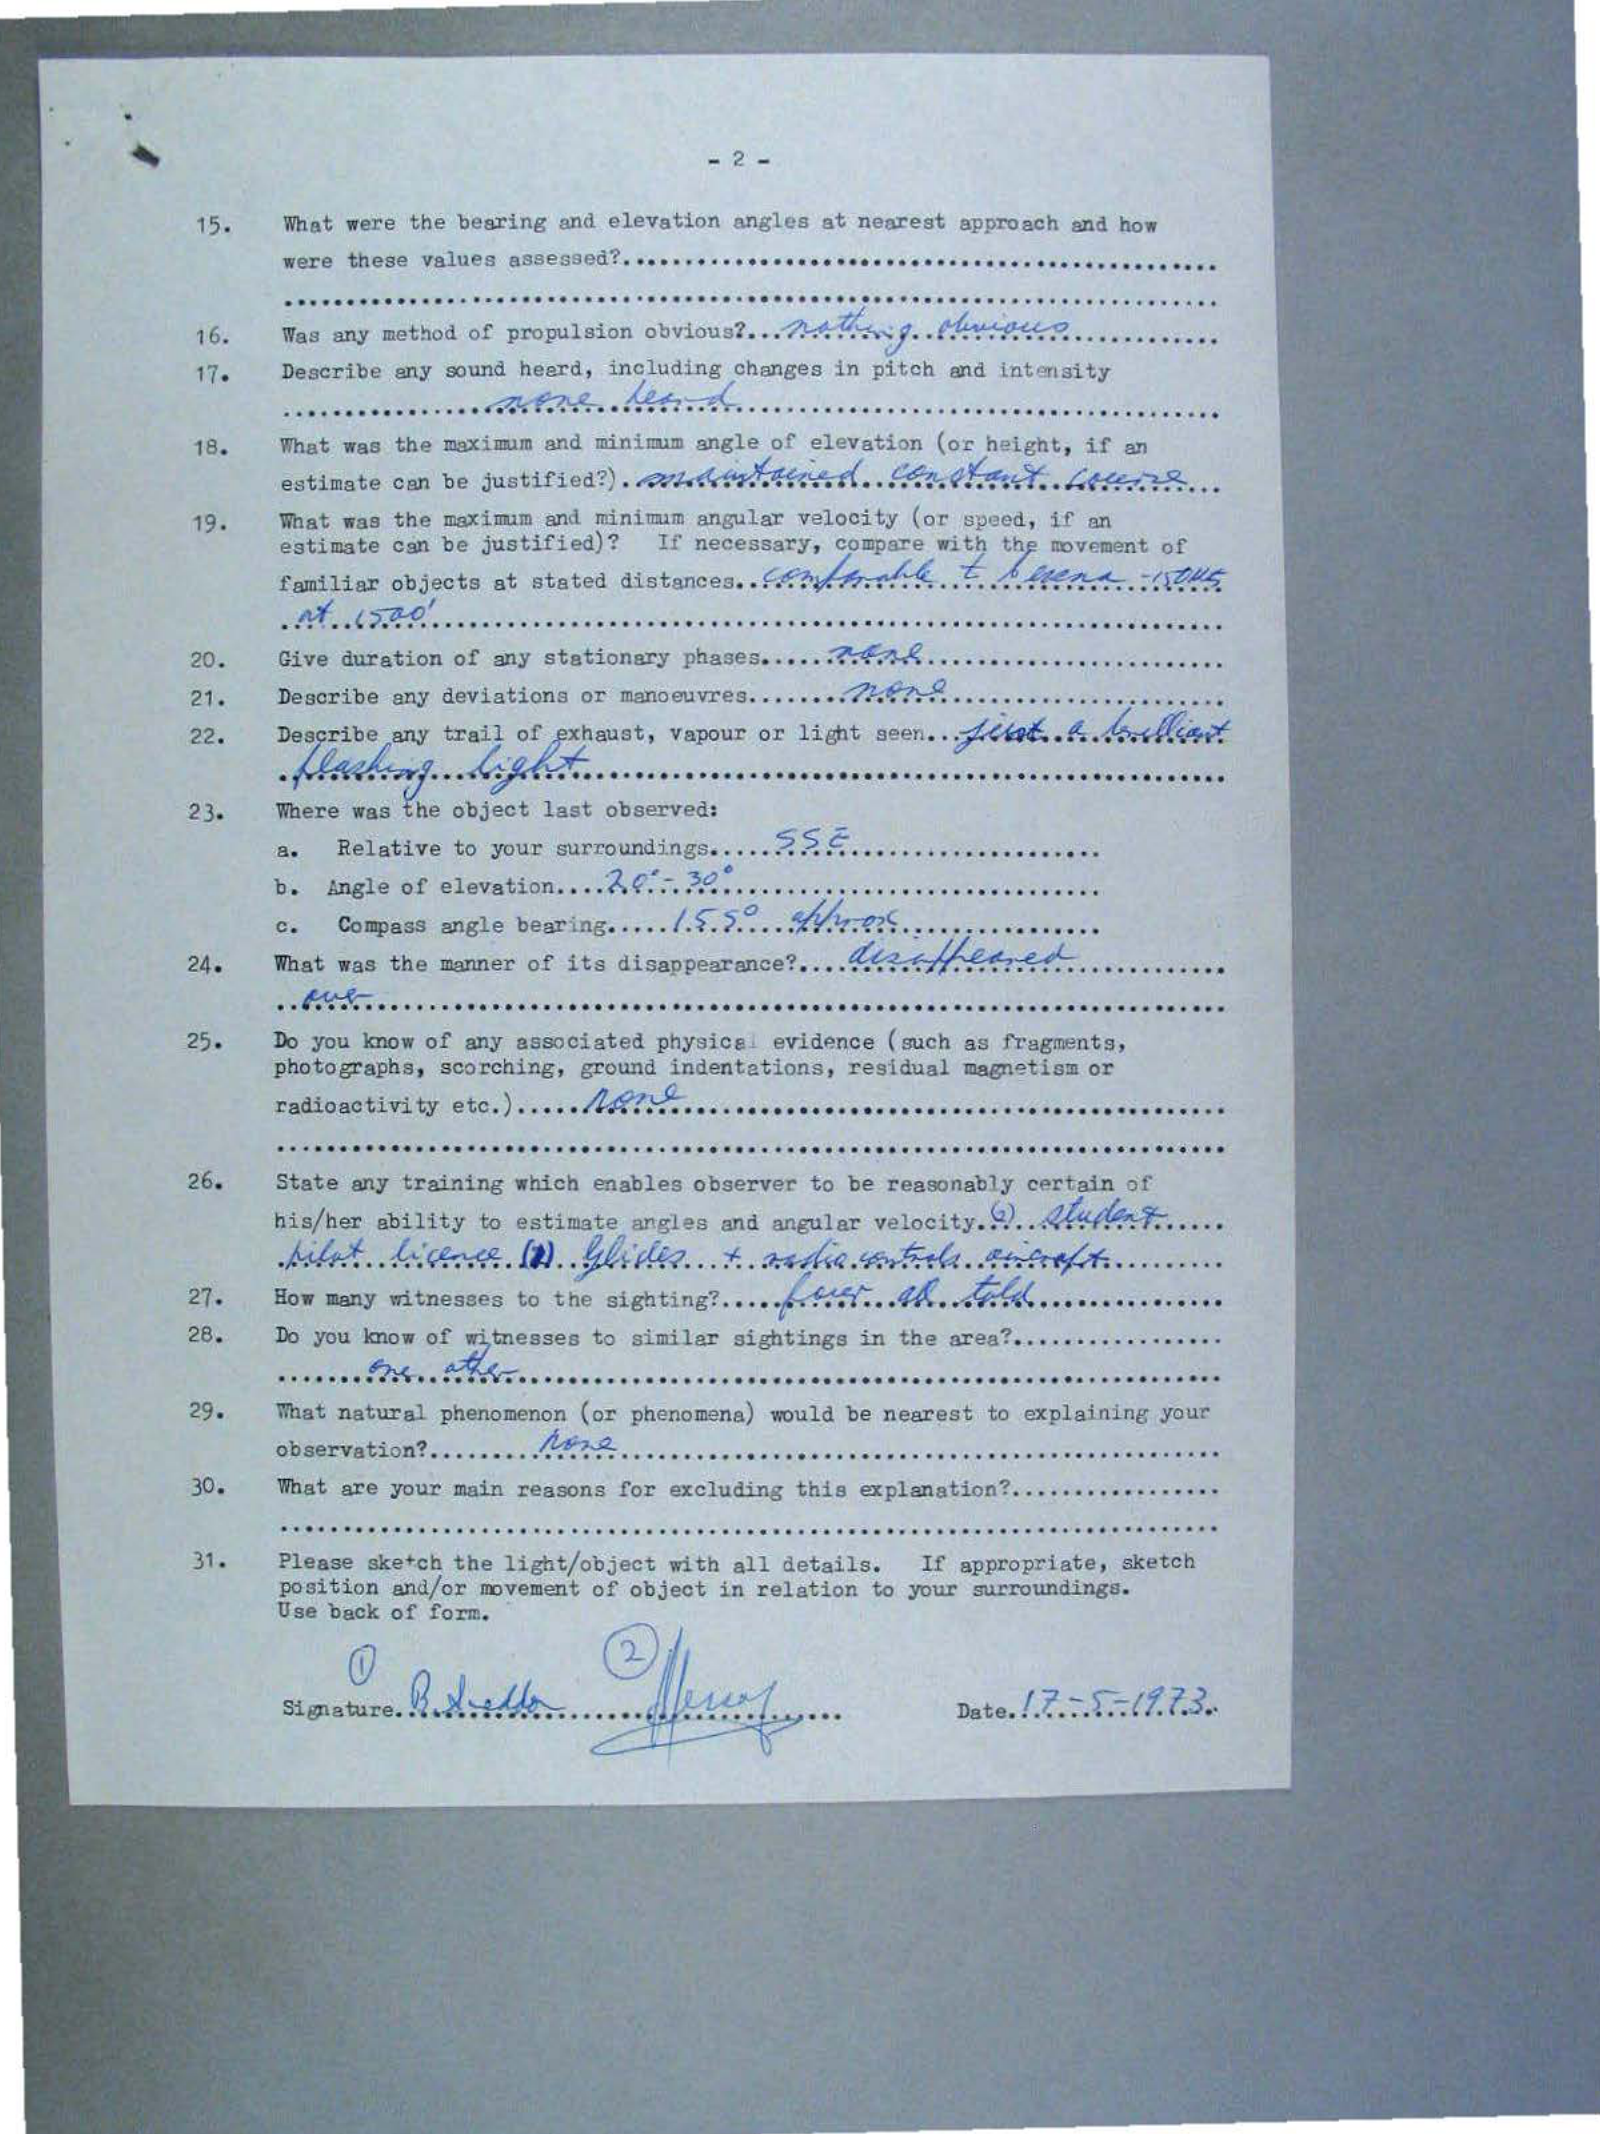 - 2 -
15. What were the bearing and elevation angles at nearest approach and how
were these values assessed?
16. Was any method of propulsion obvious? nothing obvious
17. Describe any sound heard, including changes in pitch and intensity
none heard
18. What was the maximum and minimum angle of elevation (or height, if an
estimate can be justified?) maintained constant course
19. What was the maximum and minimum angular velocity (or speed, if an
estimate can be justified)? If necessary, compare with the movement of
familiar objects at stated distances comparable t - 150 kts
at 1500'
20. Give duration of any stationary phases none
21. Describe any deviations or manoeuvres none
22. Describe any trail of exhaust, vapour or light seen just a brilliant
flashing light
23. Where was the object last observed:
a. Relative to your surroundings SSE
b. Angle of elevation 20° - 30°
c. Compass angle bearing 155° approx
24. What was the manner of its disappearance? disappeared
over
25. Do you know of any associated physical evidence (such as fragments,
photographs, scorching, ground indentations, residual magnetism or
radioactivity etc.) none
26. State any training which enables observer to be reasonably certain of
his/her ability to estimate angles and angular velocity. (2) student
pilot licence (1) Glides + radio controls aircraft
27. How many witnesses to the sighting? four all told
28. Do you know of witnesses to similar sightings in the area?
one other
29. What natural phenomenon (or phenomena) would be nearest to explaining your
observation? none
30. What are your main reasons for excluding this explanation?
31. Please sketch the light/object with all details. If appropriate, sketch
position and/or movement of object in relation to your surroundings.
Use back of form.
1 2
Signature B. Date 17-5-1973